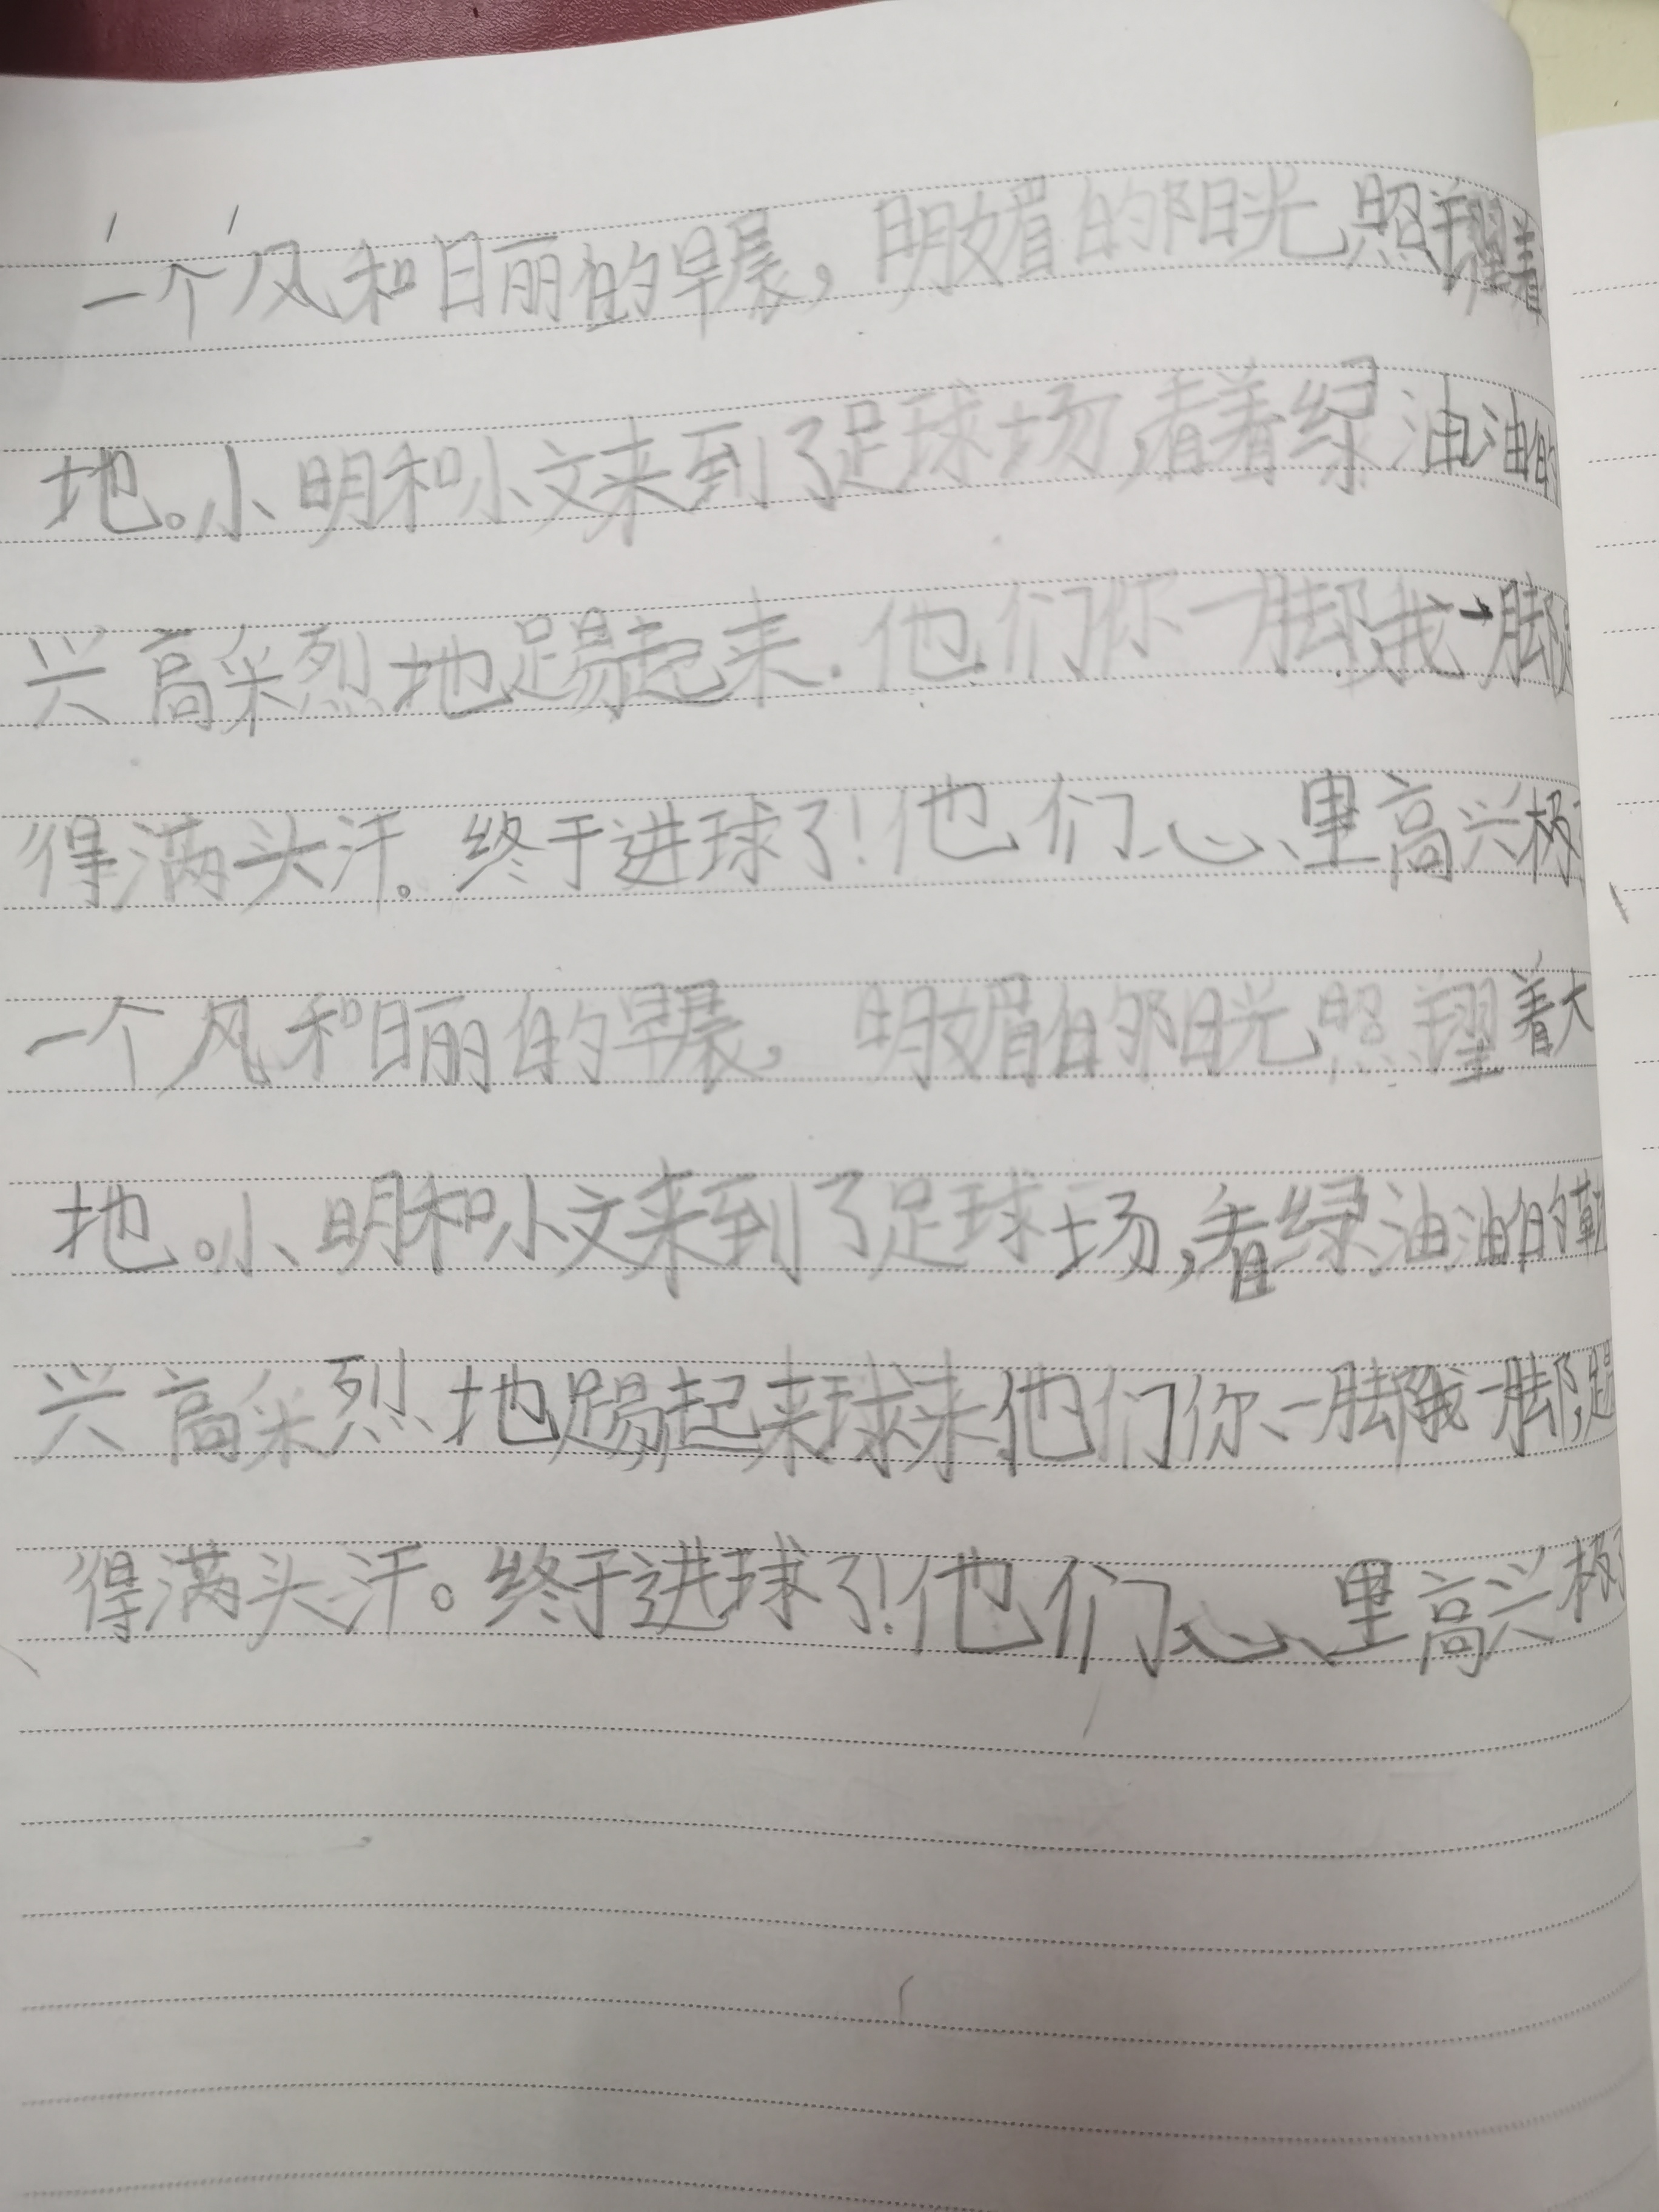 一个风和日丽的早晨，明媚的阳光照耀着
地。小明和小文来到了足球场，看着绿油油的
兴高采烈地踢起来.他们你一脚我一脚
得满头汗。终于进球了！他们心里高兴极
一个风和日丽的早晨，明媚的阳光照耀着大
地。小明和小文来到了足球场，看绿油油的
兴高采烈地踢起来球来他们你一脚我一脚，踢
得满头汗。终于进球了！他们心里高兴极